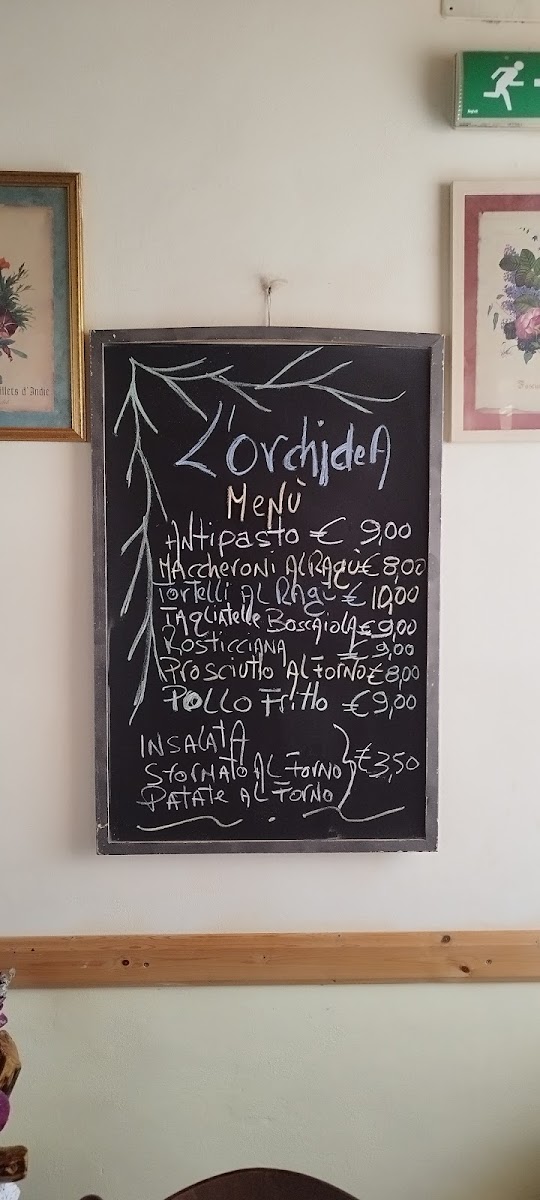 L'orchideA
MeNÙ
ANtipasto € 9,00
MAccheroNi Al RAgù € 8,00
Tortelli AL RAgù € 10,00
TAgliAtelle BoscAiolA € 9,00
RosticciANA € 9,00
Prosciutto Al ForNo € 8,00
POLLO Fritto € 9,00
INSALAtA
SformAto AL ForNo } € 3,50
PATATe AL ForNo
illets d'Andre